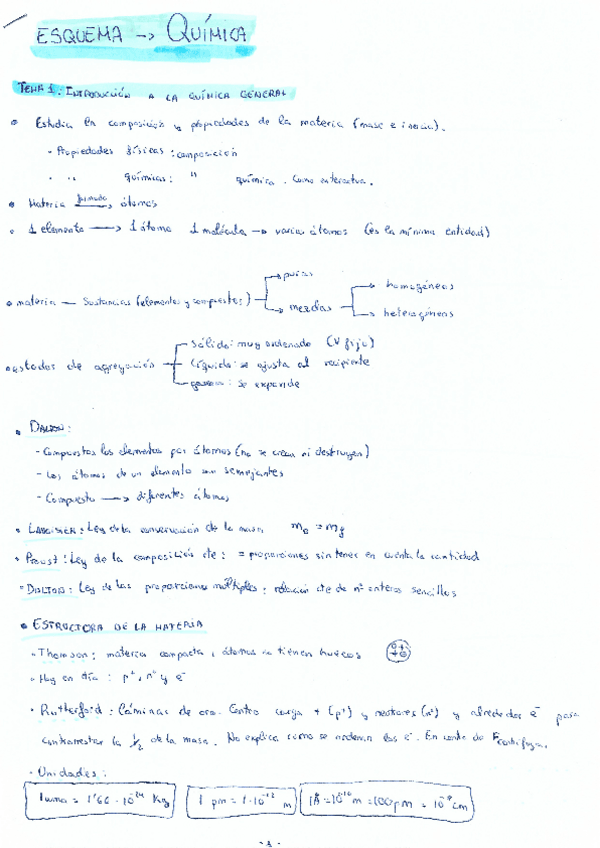 ESQUEMA -> QUÍMICA
TEMA 1: INTRODUCCIÓN A LA QUÍMICA GENERAL
• Estudia la composición y propiedades de la materia (masa e inercia).
- Propiedades físicas: composición
- " químicas: " química. Como interactua.
• Materia formada átomos
• 1 elemento -> 1 átomo 1 molécula -> varios átomos (es la mínima entidad)
• materia — Sustancias (elementos y compuestos) puras
mezclas homogéneos
heterogéneos
• estados de agregación Sólido: muy ordenado (V fijo)
Líquido: se ajusta al recipiente
gaseoso: se expande
• DALTON:
- Compuestos los elementos por átomos (no se crean ni destruyen)
- Los átomos de un elemento son semejantes
- Compuesto -> diferentes átomos
• : Ley de la conservación de la masa
• PROUST: Ley de la composición cte: = proporciones sin tener en cuenta la cantidad
• DALTON: Ley de las proporciones múltiples: relación cte de nº enteros sencillos
• ESTRUCTURA DE LA MATERIA
• Thomson: materia compacta, átomos no tienen huecos
• Hoy en día: p⁺, n⁰ y e⁻
• Rutherford: Láminas de oro. Centro carga + (p⁺) y neutrones (n⁰) y alrededor e⁻ para
contrarrestar la de la masa. No explica como se ordenan los e⁻. En contra de F centrífuga.
• Unidades:
1 uma = 1'66 · 10⁻²⁴ Kg
1 pm = 1·10⁻¹² m
1Å = 10⁻¹⁰ m = 100 pm = 10⁻⁸ cm
- 1 -